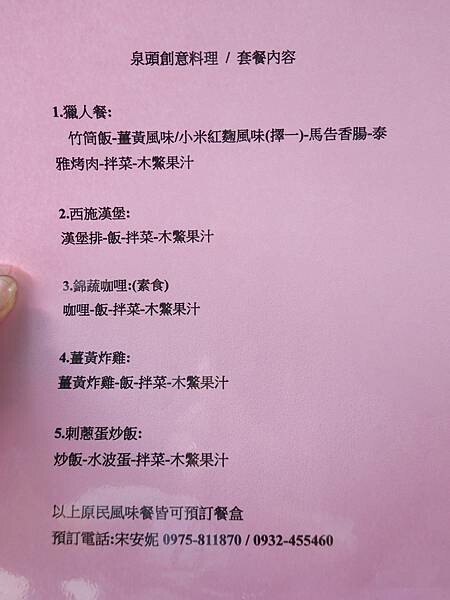 泉頭創意料理 / 套餐內容
1.獵人餐:
竹筒飯-薑黃風味/小米紅麴風味(擇一)-馬告香腸-泰
雅烤肉-拌菜-木鱉果汁
2.西施漢堡:
漢堡排-飯-拌菜-木鱉果汁
3.錦蔬咖哩:(素食)
咖哩-飯-拌菜-木鱉果汁
4.薑黃炸雞:
薑黃炸雞-飯-拌菜-木鱉果汁
5.刺蔥蛋炒飯:
炒飯-水波蛋-拌菜-木鱉果汁
以上原民風味餐皆可預訂餐盒
預訂電話:宋安妮 0975-811870 / 0932-455460